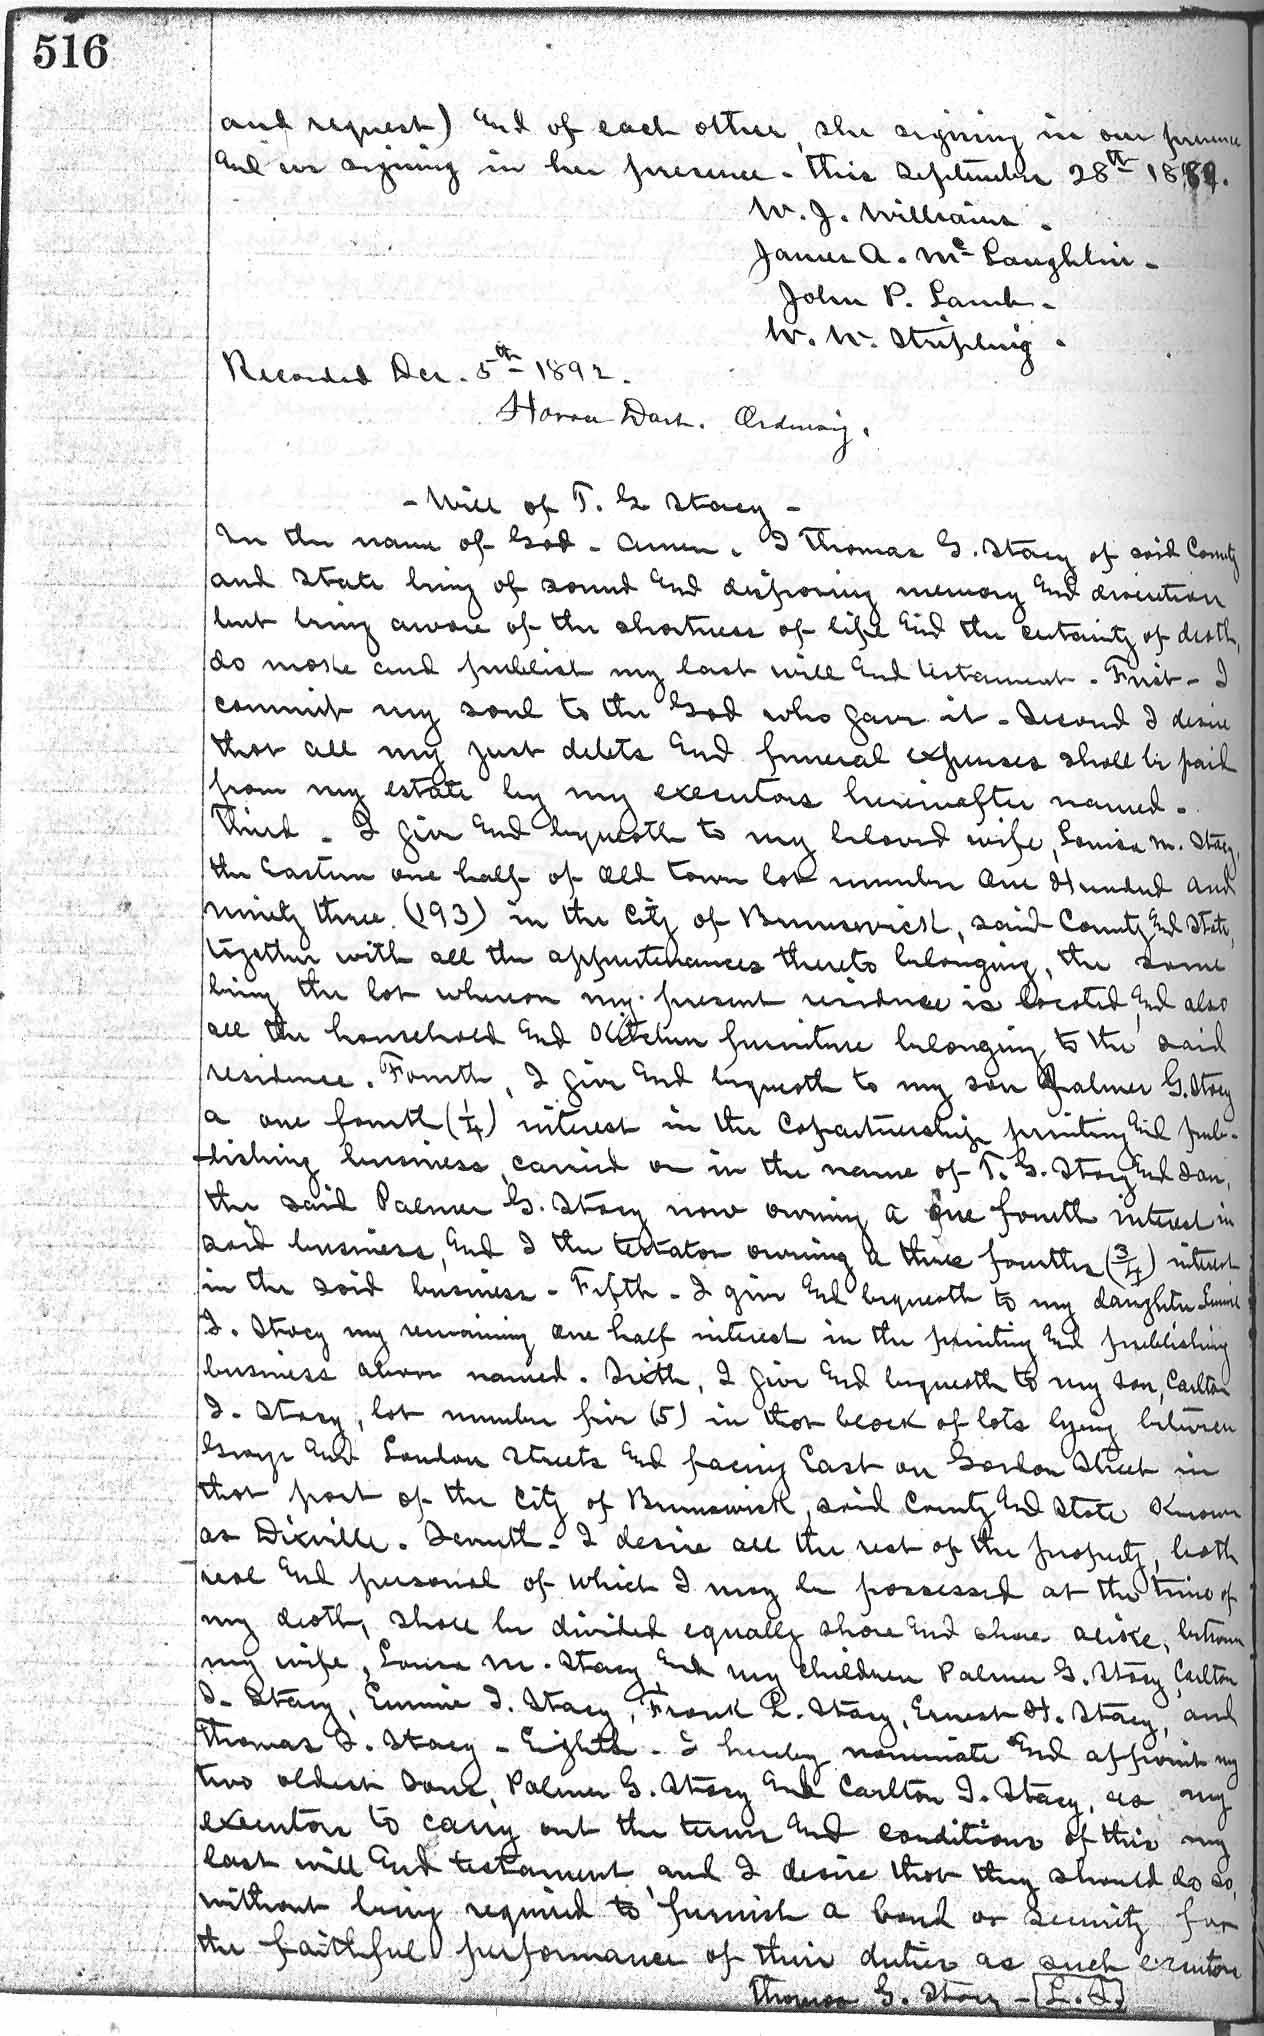 516
and request) and of each other, she signing in our presence
and we signing in her presence - this September 28th 18
W. J. Williams.
James A. McLaughlin -
John P. Lamb -
W. W. Stripling.
Recorded Dec. 5th 1892.
Horace Dart. Ordinary.
- Will of T. G Stacy -
In the name of God - Amen. I Thomas G. Stacy of said County
and State being of sound and disposing memory and discretion
but being aware of the shortness of life and the certainty of death,
do make and publish my last will and testament - First - I
commit my soul to the God who gave it - Second I desire
that all my just debts and funeral expenses shall be paid
from my estate by my executors hereinafter named -
Third - I give and bequeath to my beloved wife, Louisa M. Stacy,
the Eastern one half of Old Town lot number One Hundred and
ninety three (193) in the City of Brunswick, said County and State,
together with all the appurtenances thereto belonging, the same
being the lot whereon my present residence is located, and also
all the household and Kitchen furniture belonging to the said
residence. Fourth, I give and bequeath to my son Palmer G. Stacy
a one fourth (1/4) interest in the Copartnership printing and pub-
-lishing business, carried on in the name of T. G. Stacy and Son,
the said Palmer G. Stacy now owning a one fourth interest in
said business, and I the testator owning a three fourths (3/4) interest
in the said business - Fifth - I give and bequeath to my daughter Eunice
I. Stacy my remaining one half interest in the printing and publishing
business above named. Sixth, I give and bequeath to my son, Carlton
I. Stacy, lot number five (5) in that block of lots lying between
George and London Streets and facing East on Gordon Street in
that part of the City of Brunswick, said County and State Known
as Dixville. Seventh - I desire all the rest of the property, both
real and personal of which I may be possessed at the time of
my death, shall be divided equally share and share alike, between
my wife, Louisa M. Stacy and my children Palmer G. Stacy, Carlton
I. Stacy, Eunice I. Stacy, Frank R. Stacy, Ernest H. Stacy, and
Thomas I. Stacy - Eighth - I hereby nominate and appoint my
two oldest sons, Palmer G. Stacy and Carlton I. Stacy, as my
executors to carry out the terms and conditions of this my
last will and testament, and I desire that they should do so,
without being required to furnish a bond or security for
the faithful performance of their duties as such executors
Thomas G. Stacy - [L.S.]